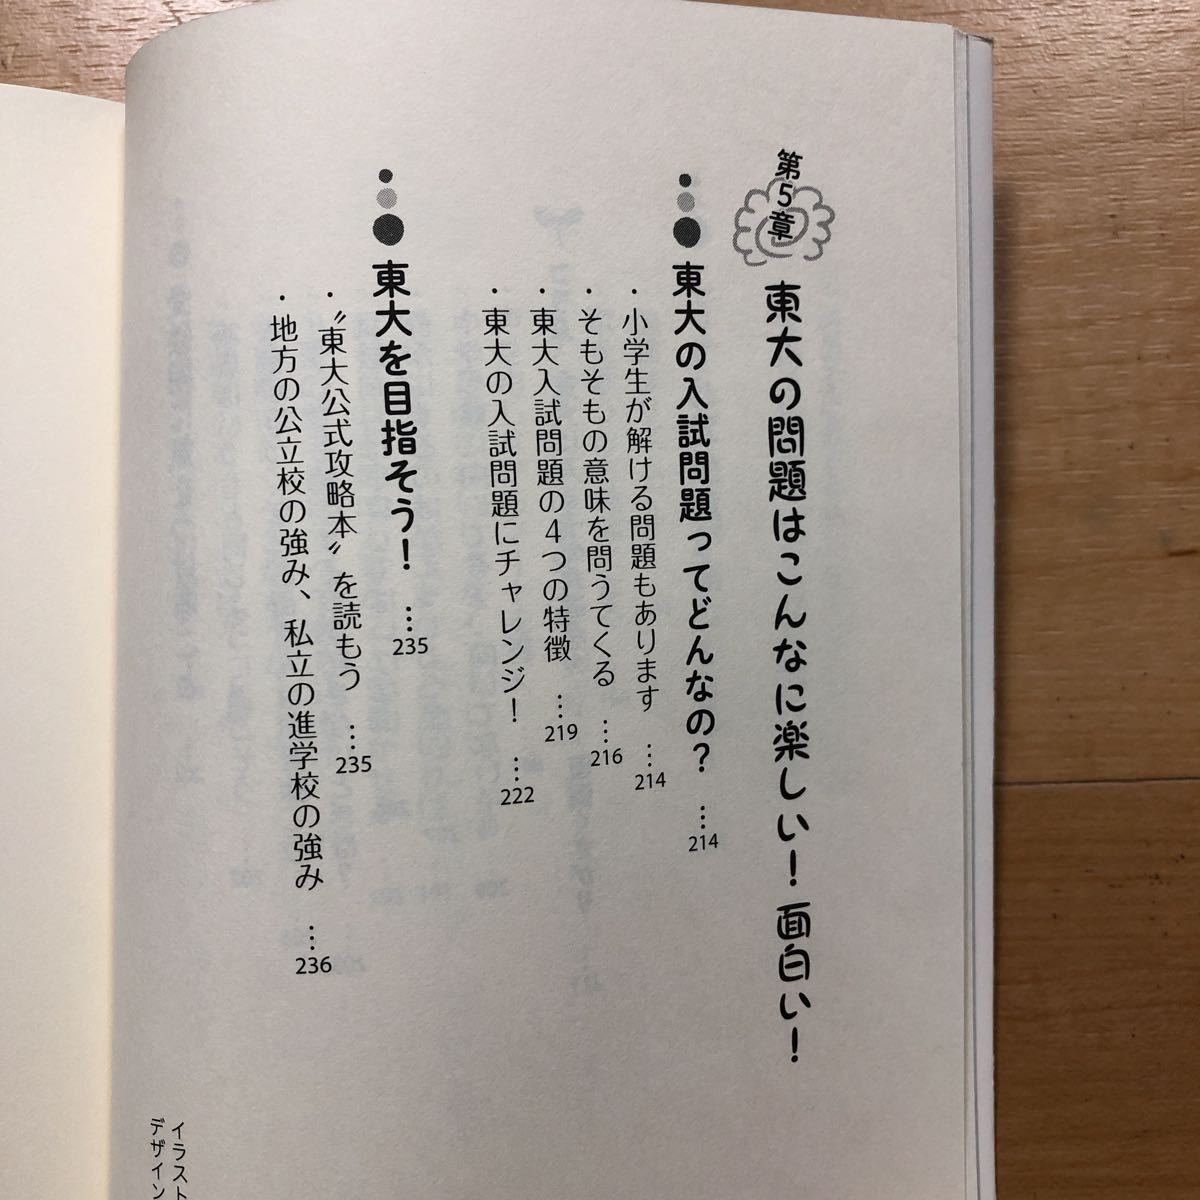 第5章
東大の問題はこんなに楽しい！面白い！
東大の入試問題ってどんなの？ … 214
・小学生が解ける問題もあります … 214
・そもそもの意味を問うてくる … 216
・東大入試問題の4つの特徴 … 219
・東大の入試問題にチャレンジ！ … 222
東大を目指そう！ … 235
・〝東大公式攻略本〟を読もう … 235
・地方の公立校の強み、私立の進学校の強み … 236
イラスト
デザイン